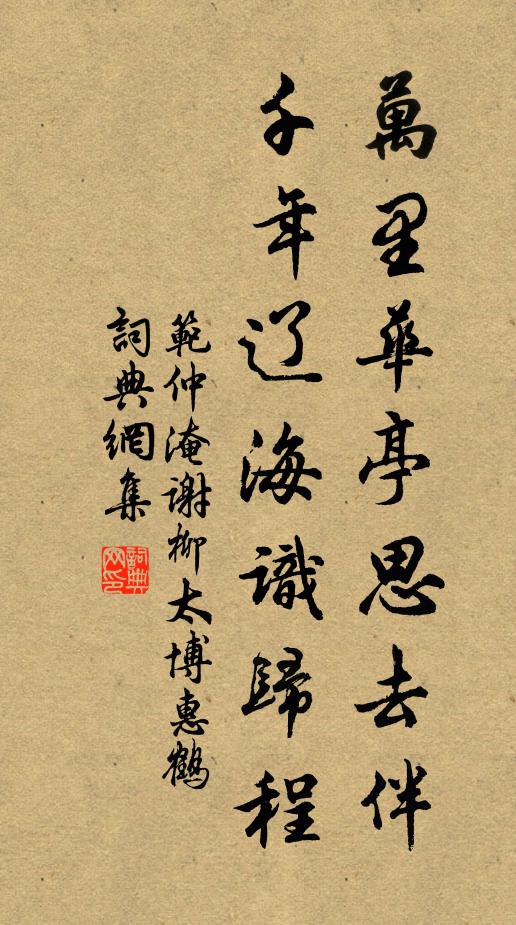 萬里華亭思去伴
千年辽海識歸程
範仲淹謝柳太博惠鶴
詞典網集
詞典
网印